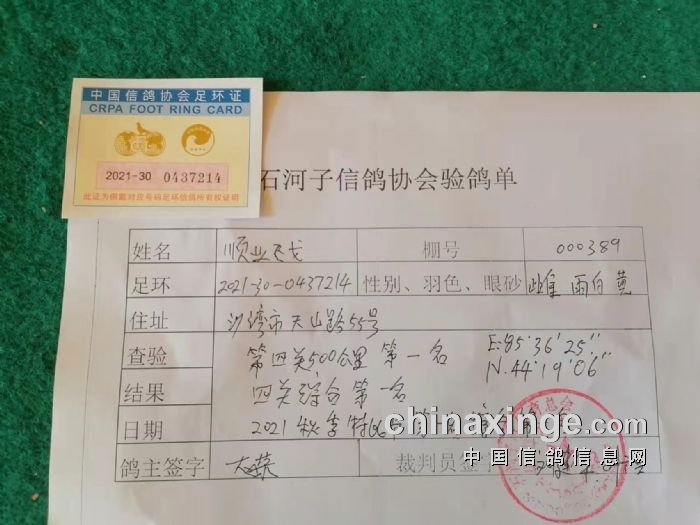 中国信鸽协会足环证
CRPA FOOT RING CARD
2021-30 0437214
此证为佩戴对应号码足环信鸽所有权证明
石河子信鸽协会验鸽单
姓名 顺业天戈 棚号 000389
足环 2021-30-0437214 性别、羽色、眼砂 雌 雨白 黄
住址 沙湾市天山路55号
查验 第四关500公里 第一名 E:85°36'25"
结果 四关综合第一名 N.44°19'06"
日期 2021秋季特比
chinaxinge.com
中国信鸽信息网
鸽主签字 裁判员签字